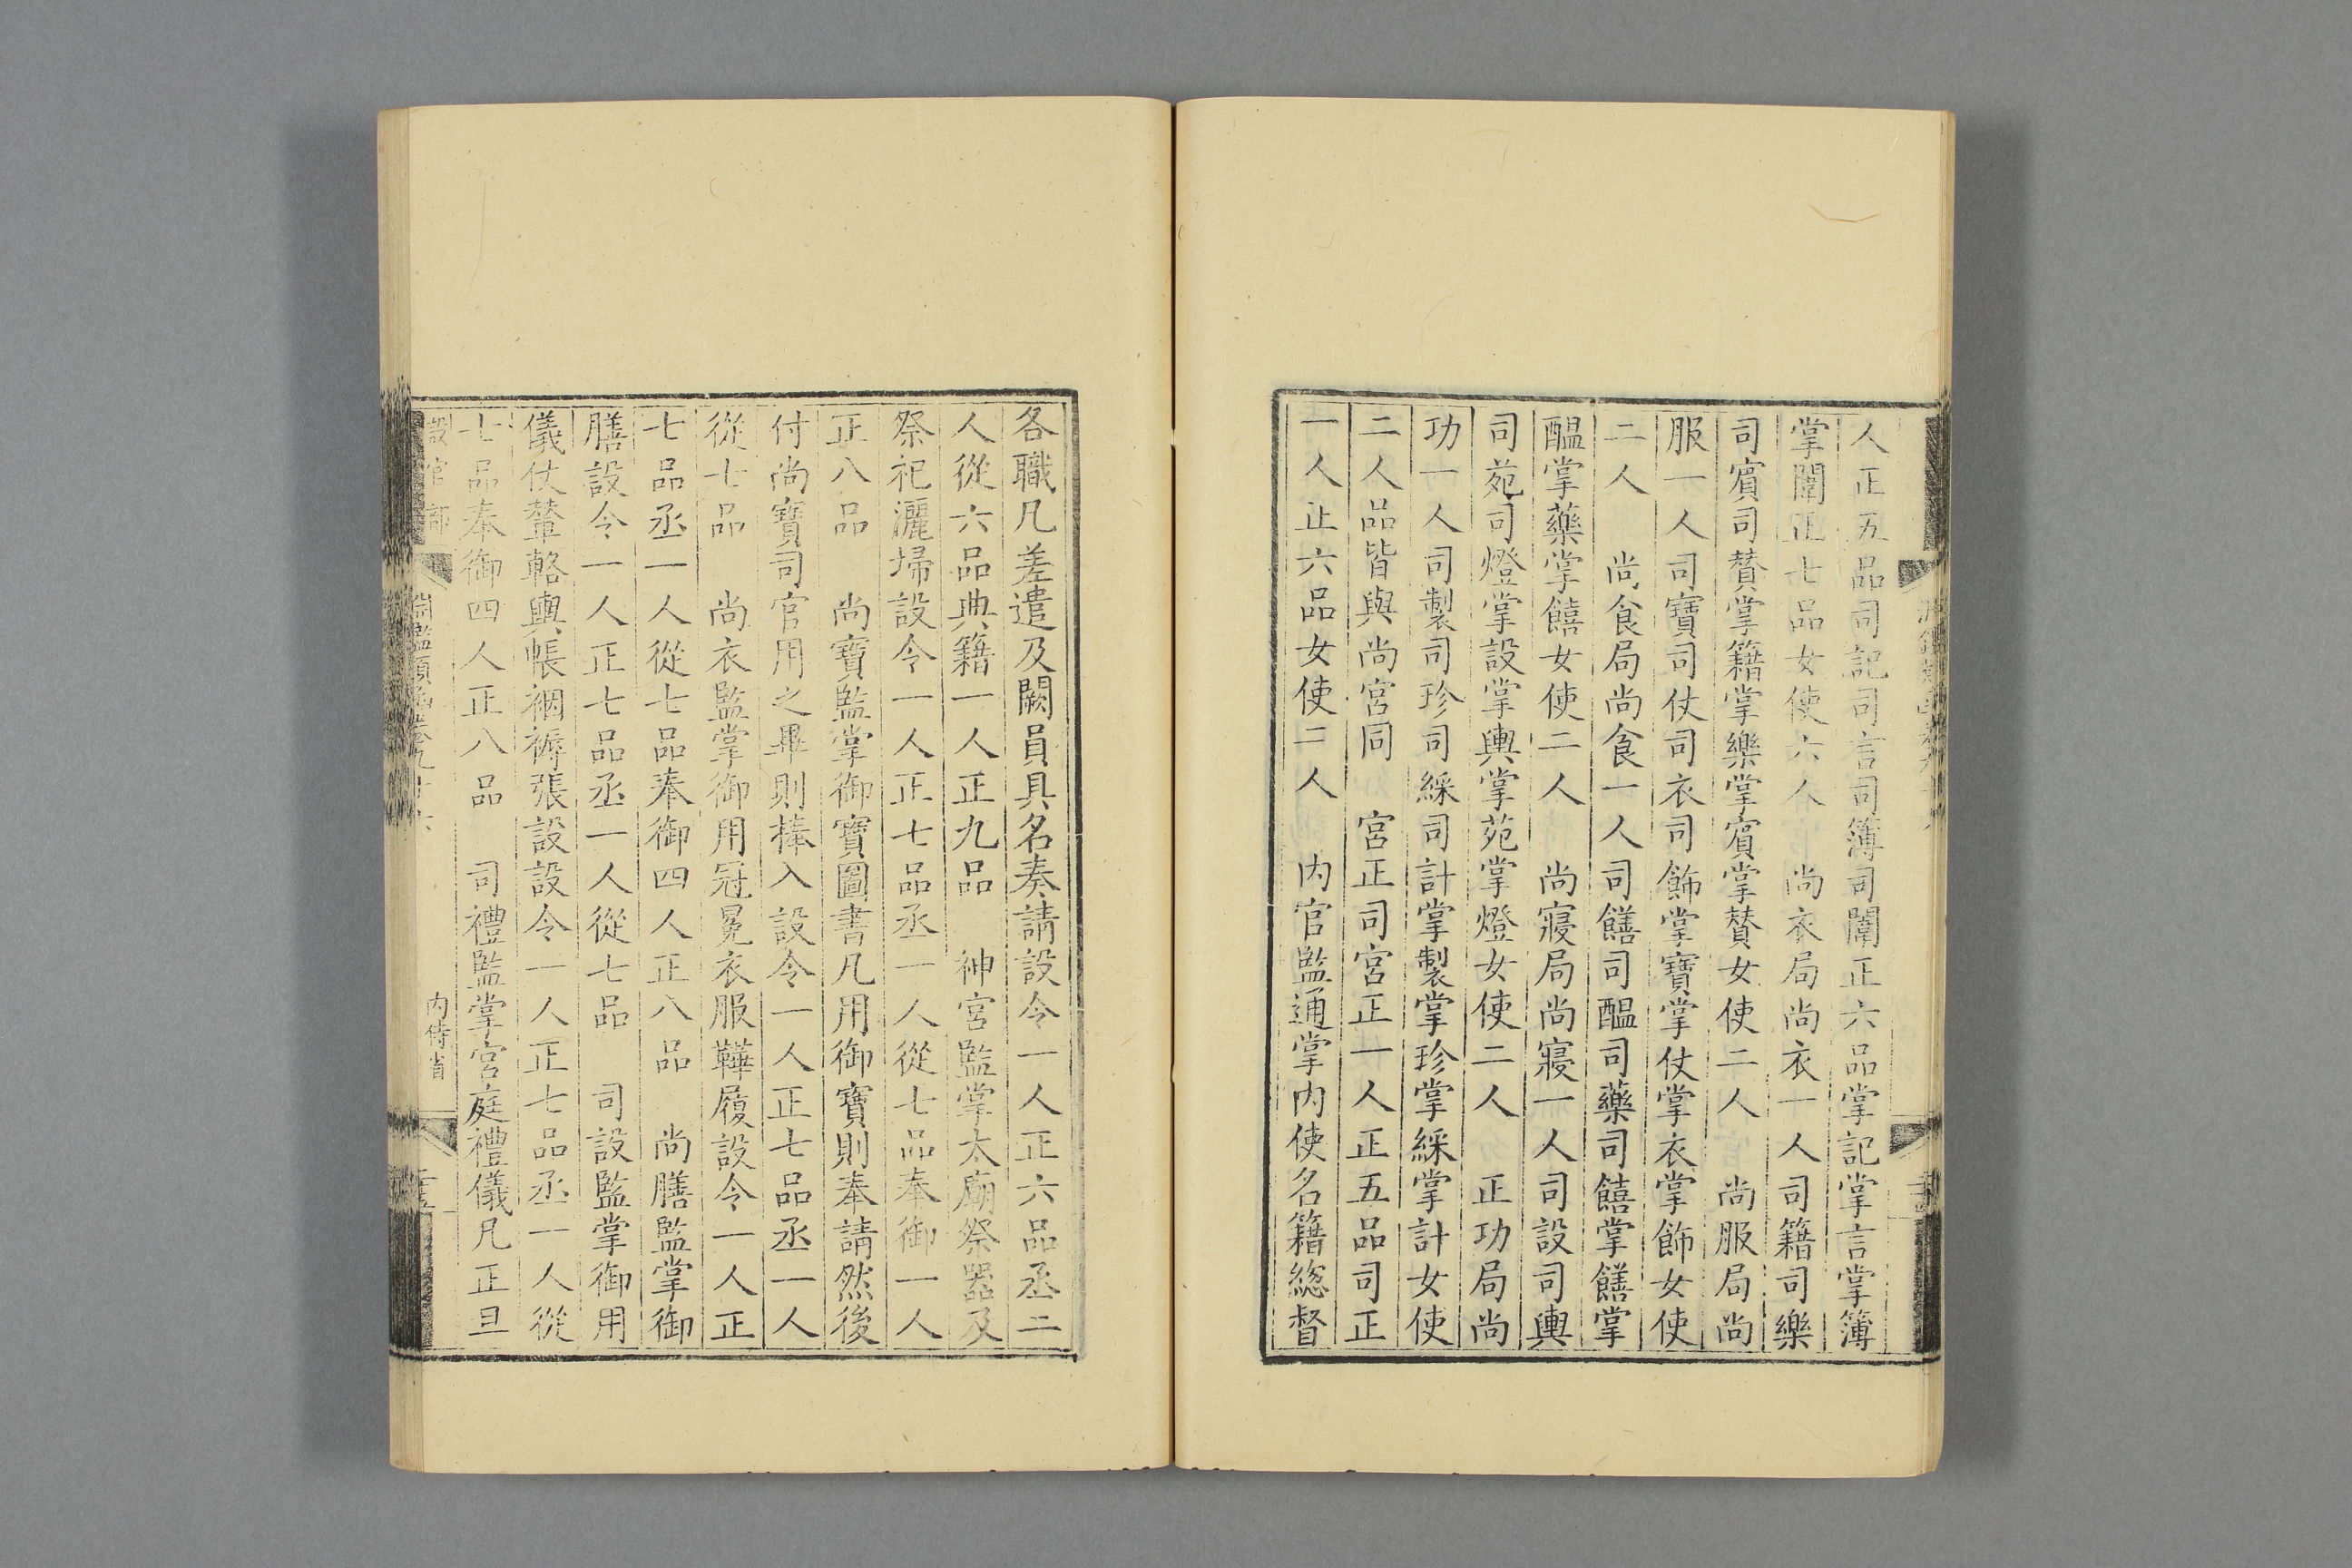 人正五品司記司言司簿司闈正六品掌記掌言掌簿
掌闈正七品女使六人　尚衣局尚衣一人司籍司樂
司賓司贊掌籍掌樂掌賓掌贊女使二人　尚服局尚
服一人司寶司仗司衣司飾掌寶掌仗掌衣掌飾女使
二人　尚食局尚食一人司饍司醞司藥司饎掌饍掌
醞掌藥掌饎女使二人　尚寢局尚寢一人司設司輿
司苑司燈掌設掌輿掌苑掌燈女使二人　正功局尚
功一人司製司珍司綵司計掌製掌珍掌綵掌計女使
二人品皆與尚宮同　宮正司宮正一人正五品司正
一人正六品女使二人　内官監通掌内使名籍總督
各職凡差遣及闕員具名奏請設令一人正六品丞二
人從六品典籍一人正九品　神宮監掌太廟祭器及
祭祀灑掃設令一人正七品丞一人從七品奉御一人
正八品　尚寶監掌御寶圖書凡用御寶則奉請然後
付尚寶司官用之畢則捧入設令一人正七品丞一人
從七品　尚衣監掌御用冠冕衣服鞾履設令一人正
七品丞一人從七品奉御四人正八品　尚膳監掌御
膳設令一人正七品丞一人從七品　司設監掌御用
儀仗輦輅輿帳裀褥張設設令一人正七品丞一人從
七品奉御四人正八品　司禮監掌宮庭禮儀凡正旦
設官部　淵鑑類函卷九十六　内侍省